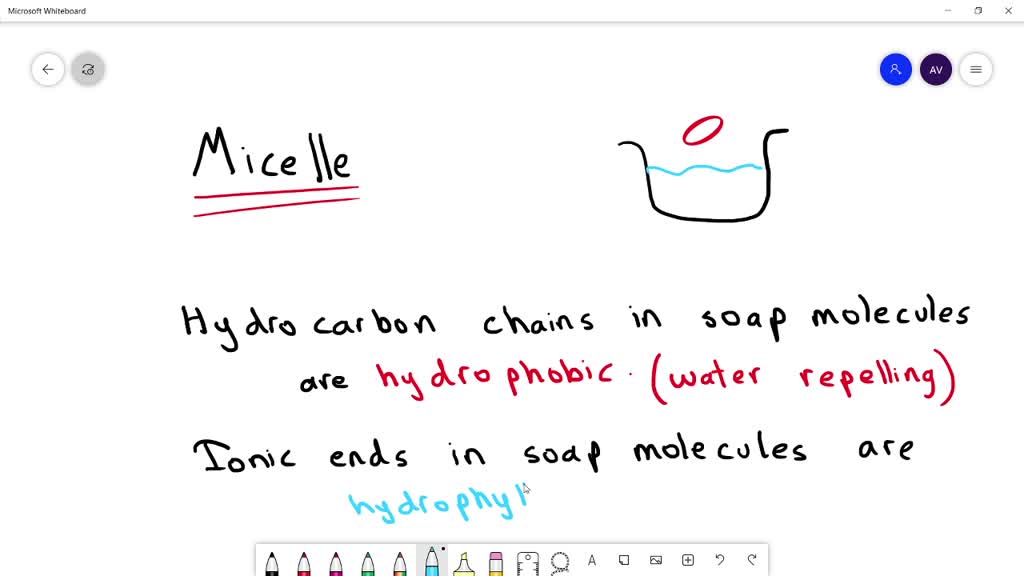 Microsoft Whiteboard
AV
Micelle
Hydro carbon chains in soap molecules
are hydrophobic. (water repelling)
Ionic ends in soap molecules are
hydrophyl
A